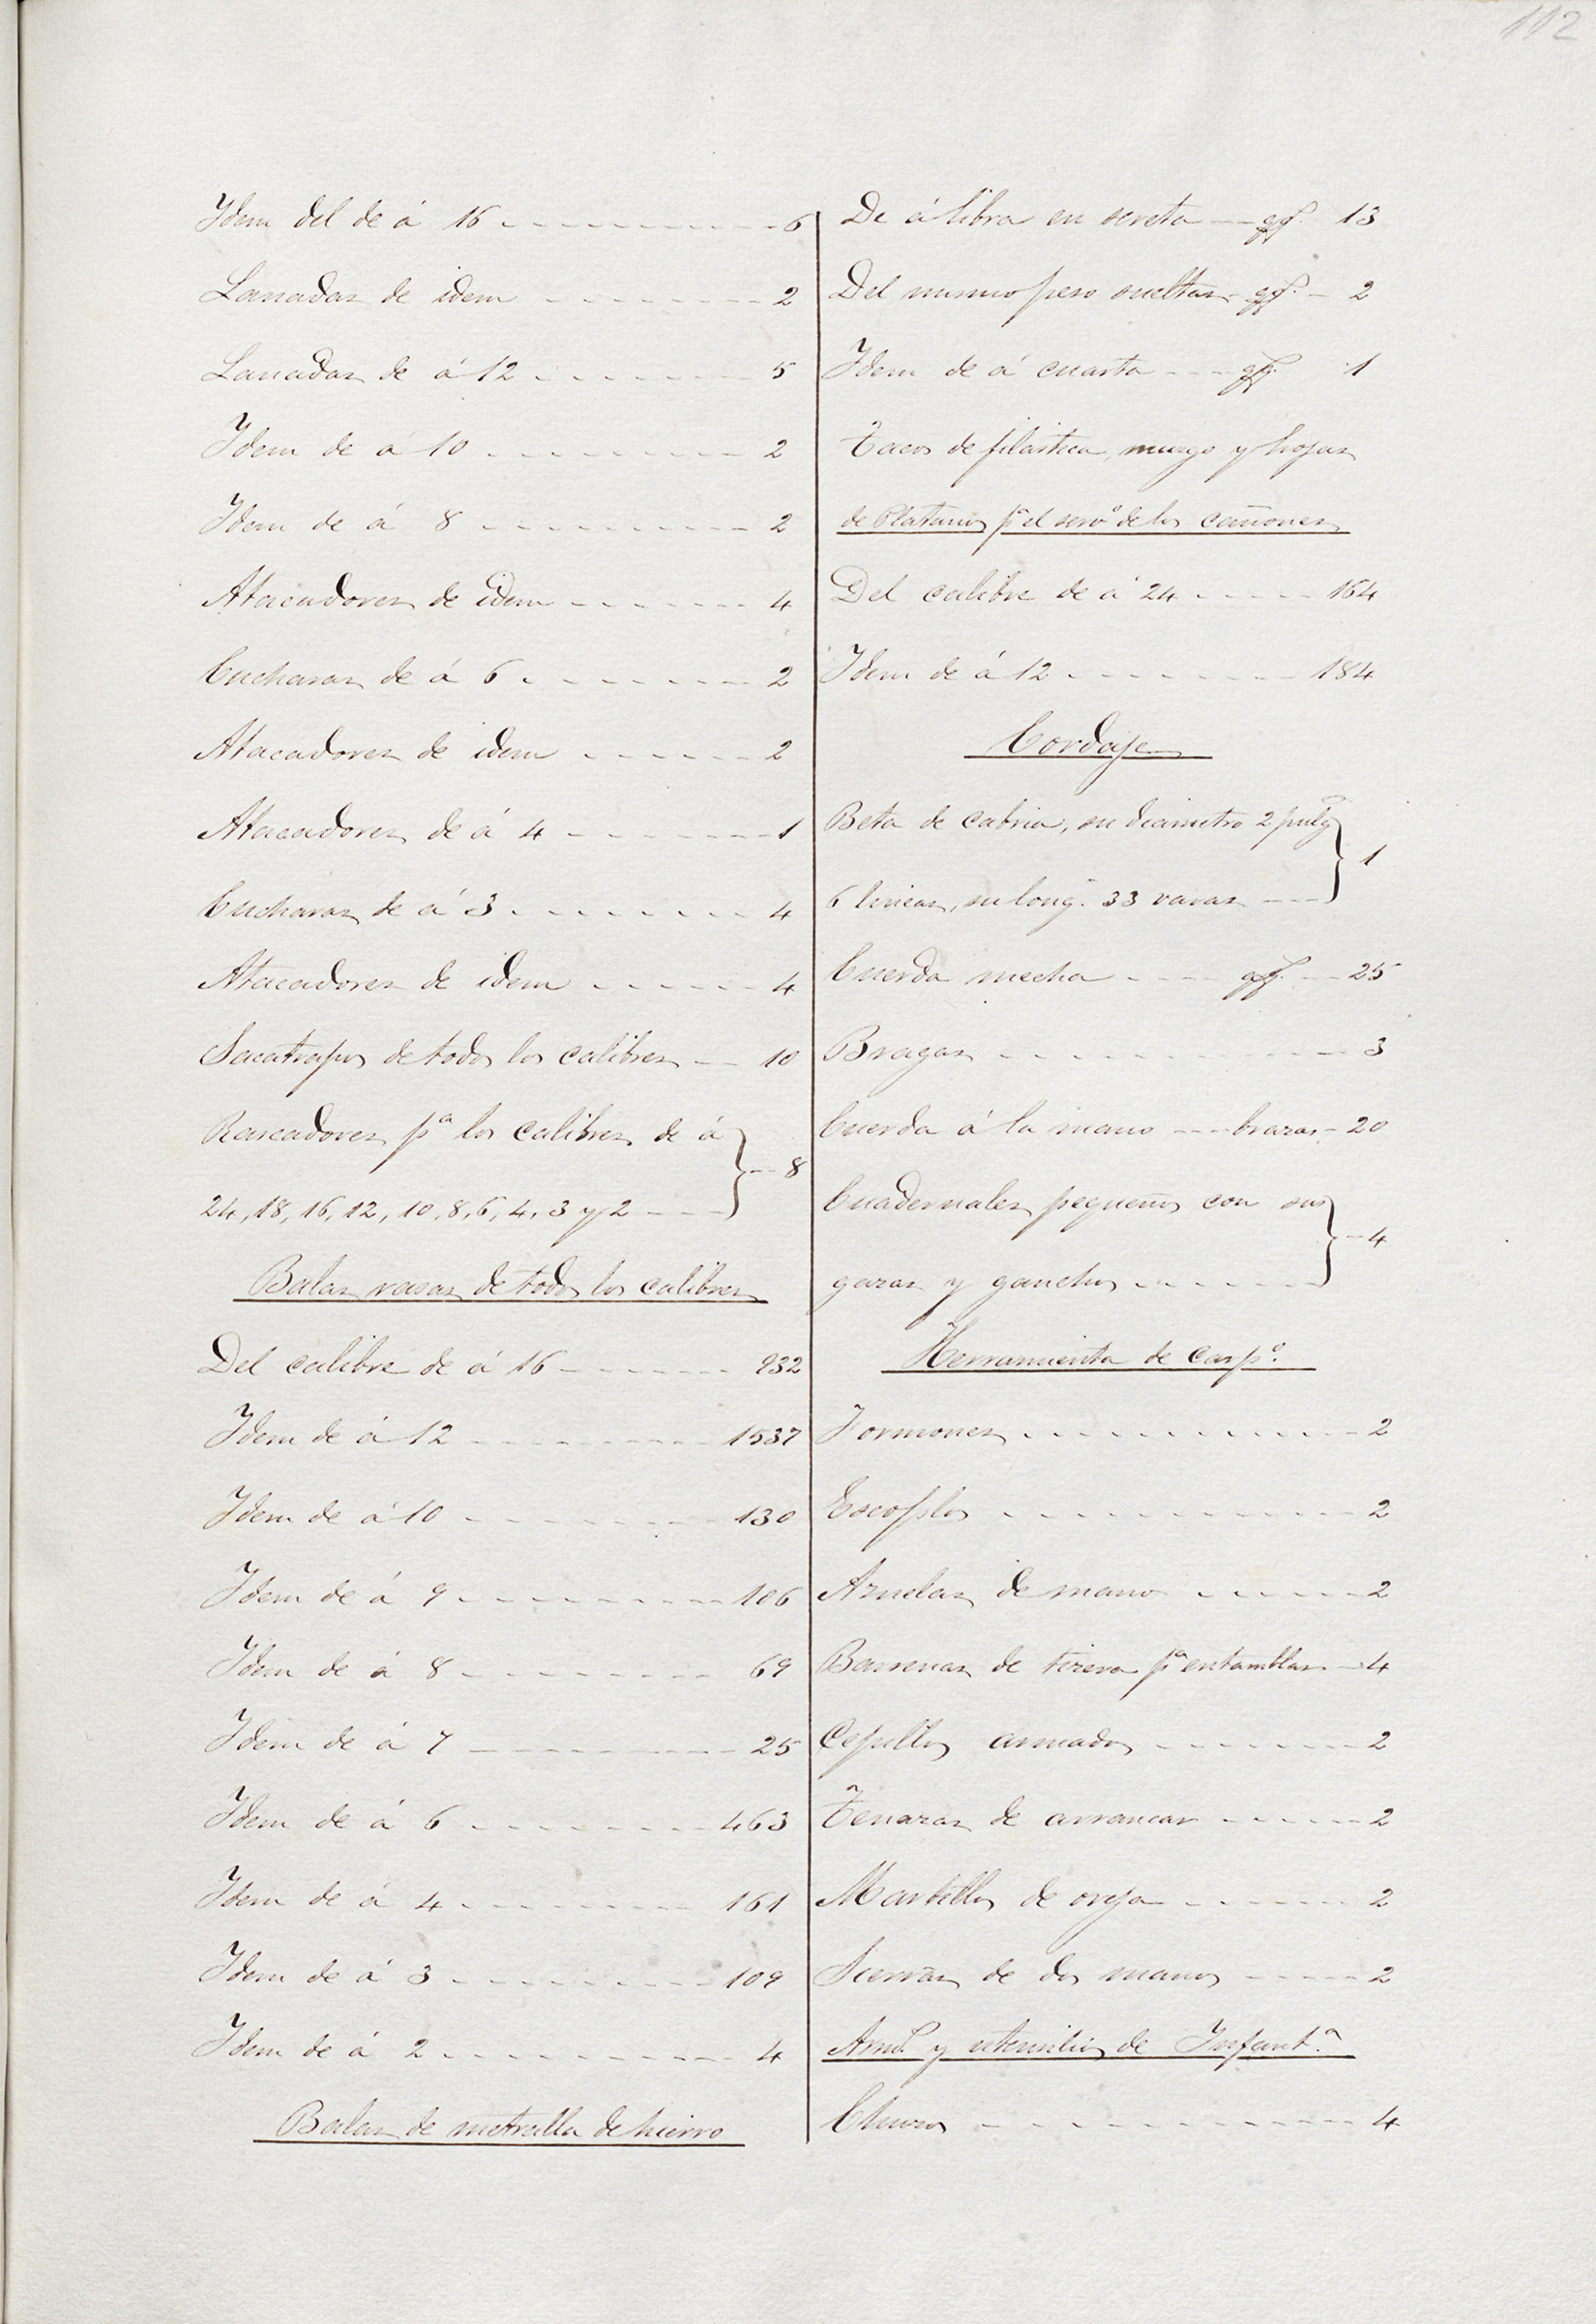 112
Idem del de á 16 - - - - - - - - - - - 6
Lanadas de idem - - - - - - - - 2
Lanadas de á 12 - - - - - - - - 5
Idem de á 10 - - - - - - - - - - 2
Idem de á 8 - - - - - - - - - - 2
Atacadores de idem - - - - - - - 4
Cucharas de á 6 - - - - - - - - 2
Atacadores de idem - - - - - - 2
Atacadores de á 4 - - - - - - - 1
Cucharas de á 3 - - - - - - - - 4
Atacadores de idem - - - - - - 4
Sacatrapos de todos los calibres - - 10
Rascadores pª los calibres de á
24, 18, 16, 12, 10, 8, 6, 4, 3 y 2 - - - } - - 8
Balas rasas de todos los calibres
Del calibre de á 16 - - - - - - - 932
Idem de á 12 - - - - - - - - - 1537
Idem de á 10 - - - - - - - - - 130
Idem de á 9 - - - - - - - - - - 106
Idem de á 8 - - - - - - - - - 69
Idem de á 7 - - - - - - - - - - 25
Idem de á 6 - - - - - - - - - 463
Idem de á 4 - - - - - - - - - 161
Idem de á 3 - - - - - - - - - - 109
Idem de á 2 - - - - - - - - - - 4
Balas de metralla de hierro
De á libra en - - qq.s 13
Del mismo peso sueltas - qq.s - 2
Idem de á cuarta - - - qq.s 1
Tacos de filástica, musgo y hojas
de Platanos pª el servº de los cañones
Del calibre de á 24 - - - - - 164
Idem de á 12 - - - - - - - - 184
Cordaje
Beta de cabria, su diametro 2 pulgs
6 lineas, su long. 33 varas - - - } 1
Cuerda mecha - - - - qq.s - - 25
Bragas - - - - - - - - - - - - 3
Cuerda á la mano - - - brazas - 20
Cuadernales pequeños con sus
gazas y ganchos - - - - - - - } - - 4
Herramienta de Carpº.
Formones - - - - - - - - - - - - 2
Escoplos - - - - - - - - - - - - 2
Azuelas de mano - - - - - - 2
Barrenas de tixera pª entamblar - 4
Cepillos armados - - - - - - - 2
Tenazas de arrancar - - - - - - 2
Martillos de oreja - - - - - - - 2
Sierras de dos manos - - - - - 2
Arms. y utensilios de Infantª
Chuzos - - - - - - - - - - - - - 4